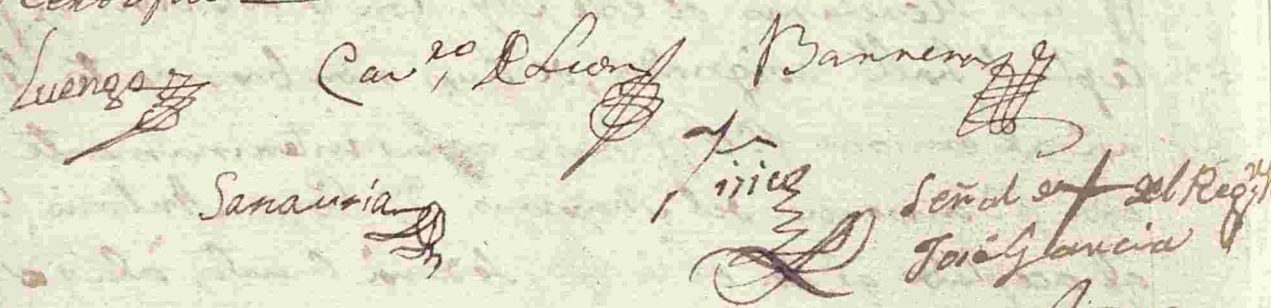 Luengo Cav.ro D Leon Barrera
Sanauria Tirico Señal de + del Reg.or
José Garcia